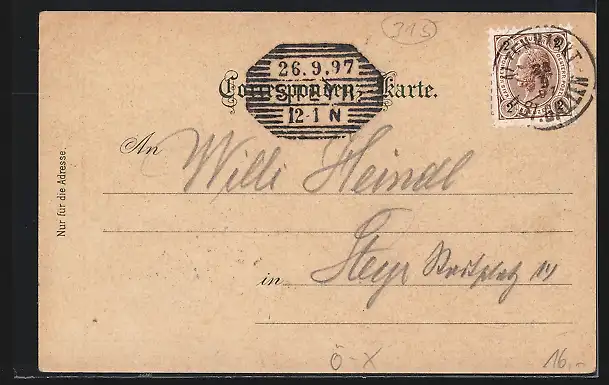 315
Correspondenz-Karte.
26.9.97
STEYR
12-1 N
2
2
Nur für die Adresse.
An Willi Heindl
in Steyr
Ö-X
16,-